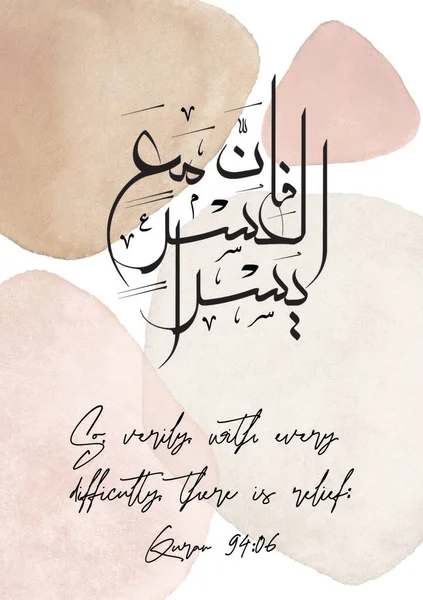 فانَّ مع
العسر
يسرا
So, verily, with every
difficulty, there is relief:
Quran 94:06